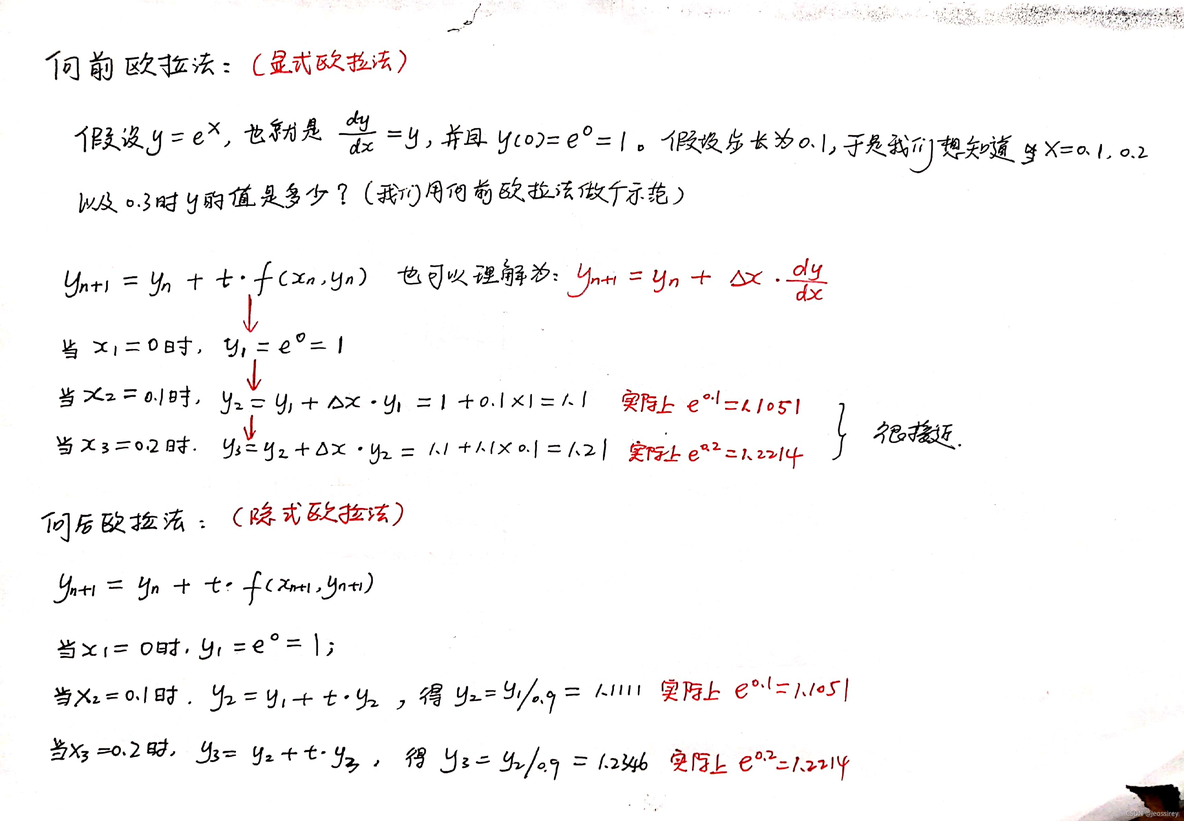 向前欧拉法：（显式欧拉法）
假设y=eˣ，也就是 dy/dx=y，并且 y(0)=e⁰=1。假设步长为0.1，于是我们想知道当X=0.1, 0.2
以及0.3时y的值是多少？（我们用向前欧拉法做个示范）
yₙ₊₁ = yₙ + t·f(xₙ,yₙ) 也可以理解为：yₙ₊₁ = yₙ + Δx·dy/dx
当 x₁=0时, y₁=e⁰=1
当 x₂=0.1时, y₂=y₁+Δx·y₁=1+0.1×1=1.1 实际上 e^0.1=1.1051
当 x₃=0.2时. y₃=y₂+Δx·y₂=1.1+1.1×0.1=1.21 实际上 e^0.2=1.2214 } 很接近.
向后欧拉法：（隐式欧拉法）
yₙ₊₁ = yₙ + t·f(xₙ₊₁,yₙ₊₁)
当x₁=0时, y₁=e⁰=1;
当x₂=0.1时. y₂=y₁+t·y₂, 得 y₂=y₁/0.9=1.1111 实际上 e^0.1=1.1051
当x₃=0.2时, y₃=y₂+t·y₃, 得 y₃=y₂/0.9=1.2346 实际上 e^0.2=1.2214
@jeassirey